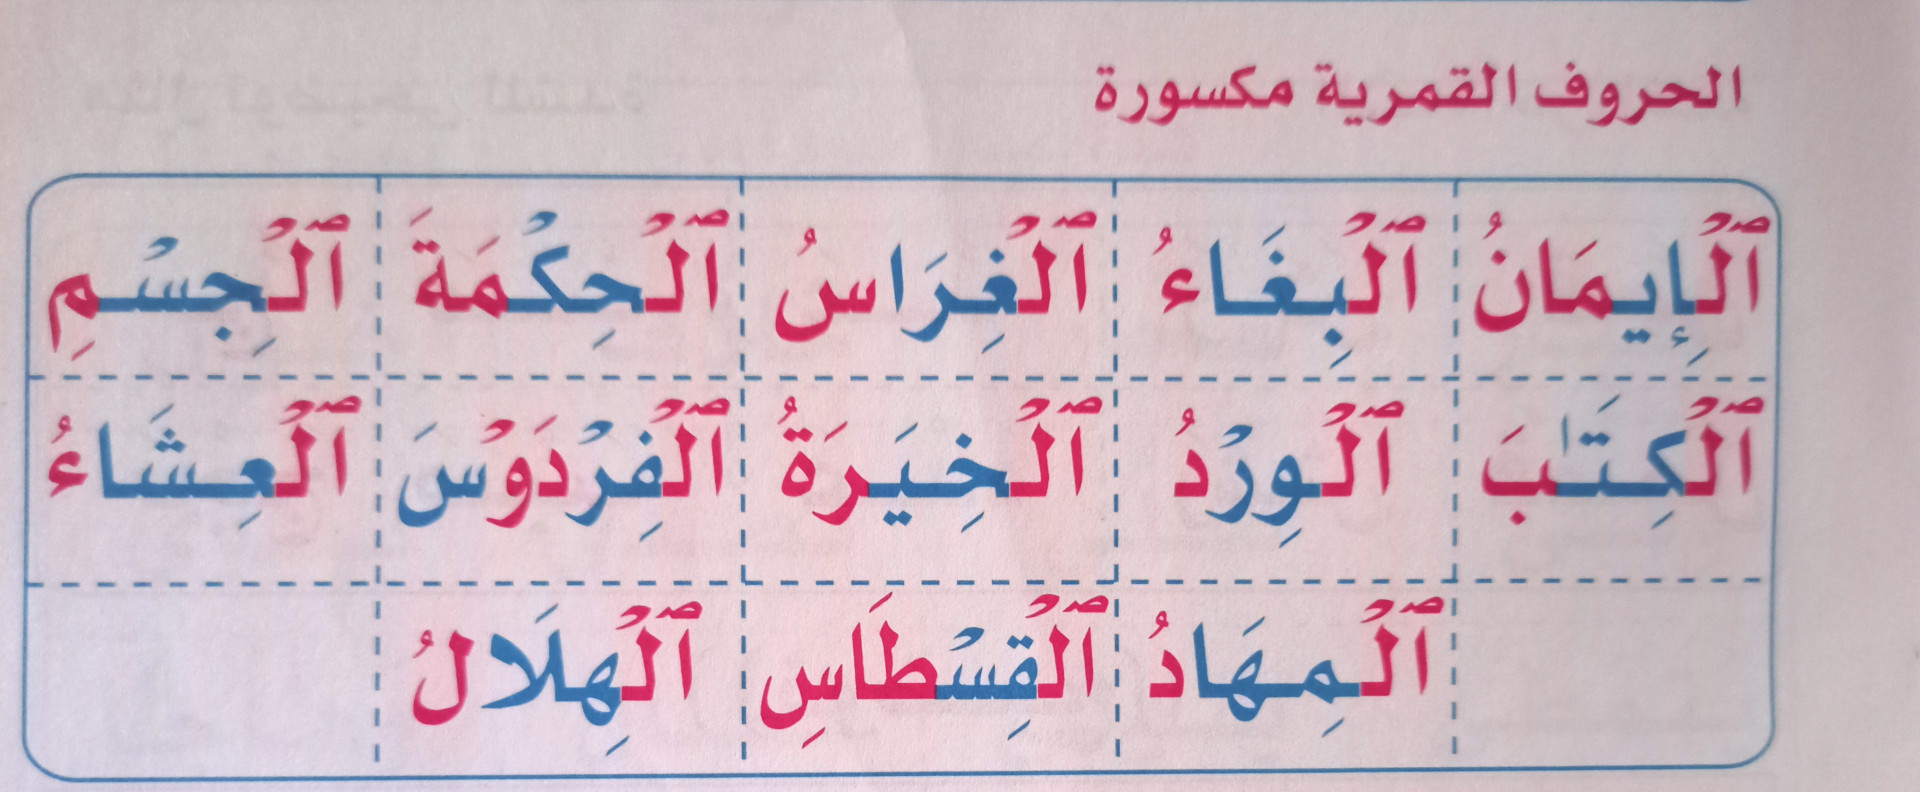 الحروف القمرية مكسورة
ٱلْإِيمَانُ ٱلْبِغَاءُ ٱلْغِرَاسُ ٱلْحِكْمَةَ ٱلْجِسْمِ
ٱلْكِتَٰبَ ٱلْوِرْدُ ٱلْخِيَرَةُ ٱلْفِرْدَوْسَ ٱلْعِشَاءُ
ٱلْمِهَادُ ٱلْقِسْطَاسِ ٱلْهِلَالُ